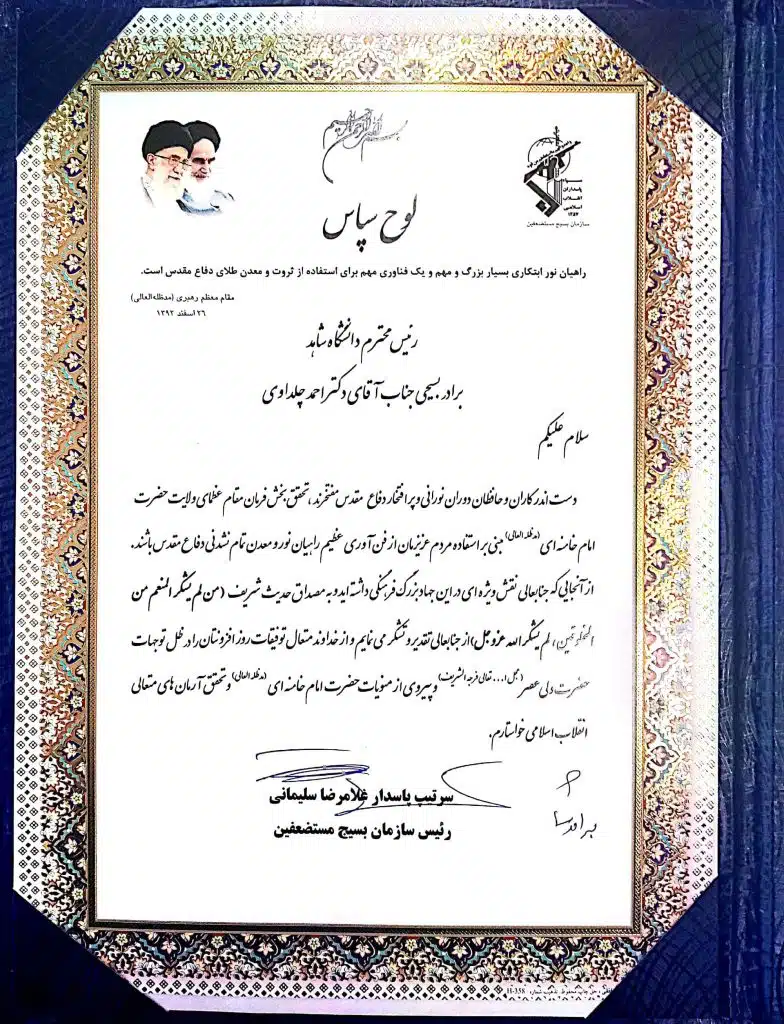 بسم الله الرحمن الرحیم
سپاه
پاسداران
انقلاب
اسلامی
سازمان بسیج مستضعفین
لوح سپاس
راهیان نور ابتکاری بسیار بزرگ و مهم و یک فناوری مهم برای استفاده از ثروت و معدن طلای دفاع مقدس است.
مقام معظم رهبری (مدظله‌العالی)
۲۶ اسفند ۱۳۹۲
رئیس محترم دانشگاه شاهد
برادر بسیجی جناب آقای دکتر احمد چلداوی
سلام علیکم
دست اندرکاران و حافظان دوران نورانی و پر افتخار دفاع مقدس مفتخرند، تحقق بخش فرمان مقام عظمای ولایت حضرت
امام خامنه ای (مدظله العالی) مبنی بر استفاده مردم عزیزمان از فن آوری عظیم راهیان نور و معدن تمام نشدنی دفاع مقدس باشند.
از آنجایی که جنابعالی نقش ویژه ای در این جهاد بزرگ فرهنگی داشته اید و به مصداق حدیث شریف (من لم یشکر المنعم من
المخلوقین، لم یشکر الله عزوجل) از جنابعالی تقدیر و تشکر می نمایم و از خداوند متعال توفیقات روز افزونتان را در ظل توجهات
حضرت ولی عصر (عجل ا... تعالی فرجه الشریف) و پیروی از منویات حضرت امام خامنه ای (مدظله العالی) و تحقق آرمان های متعالی
انقلاب اسلامی خواستارم.
سرتیپ پاسدار غلامرضا سلیمانی
رئیس سازمان بسیج مستضعفین
حق چاپ محفوظ تذهیب شماره H-358